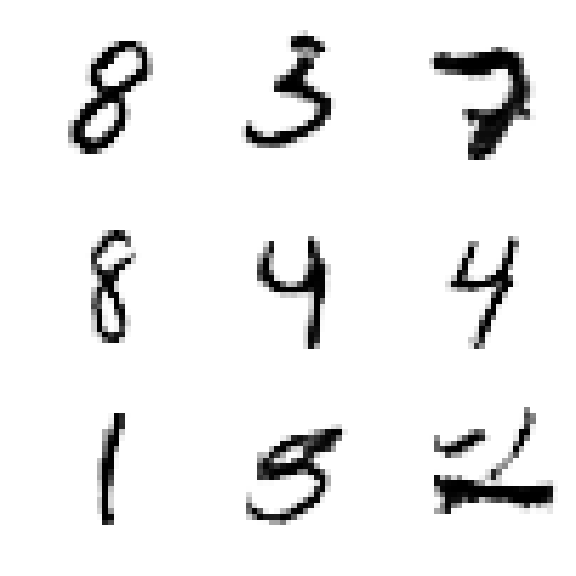 8 3 7
8 4 4
1 5